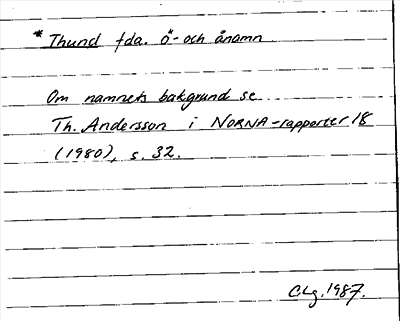 * Thund fda. ö- och ånamn
Om namnets bakgrund se
Th. Andersson i NORNA-rapporter 18
(1980), s. 32.
CLg. 1987.